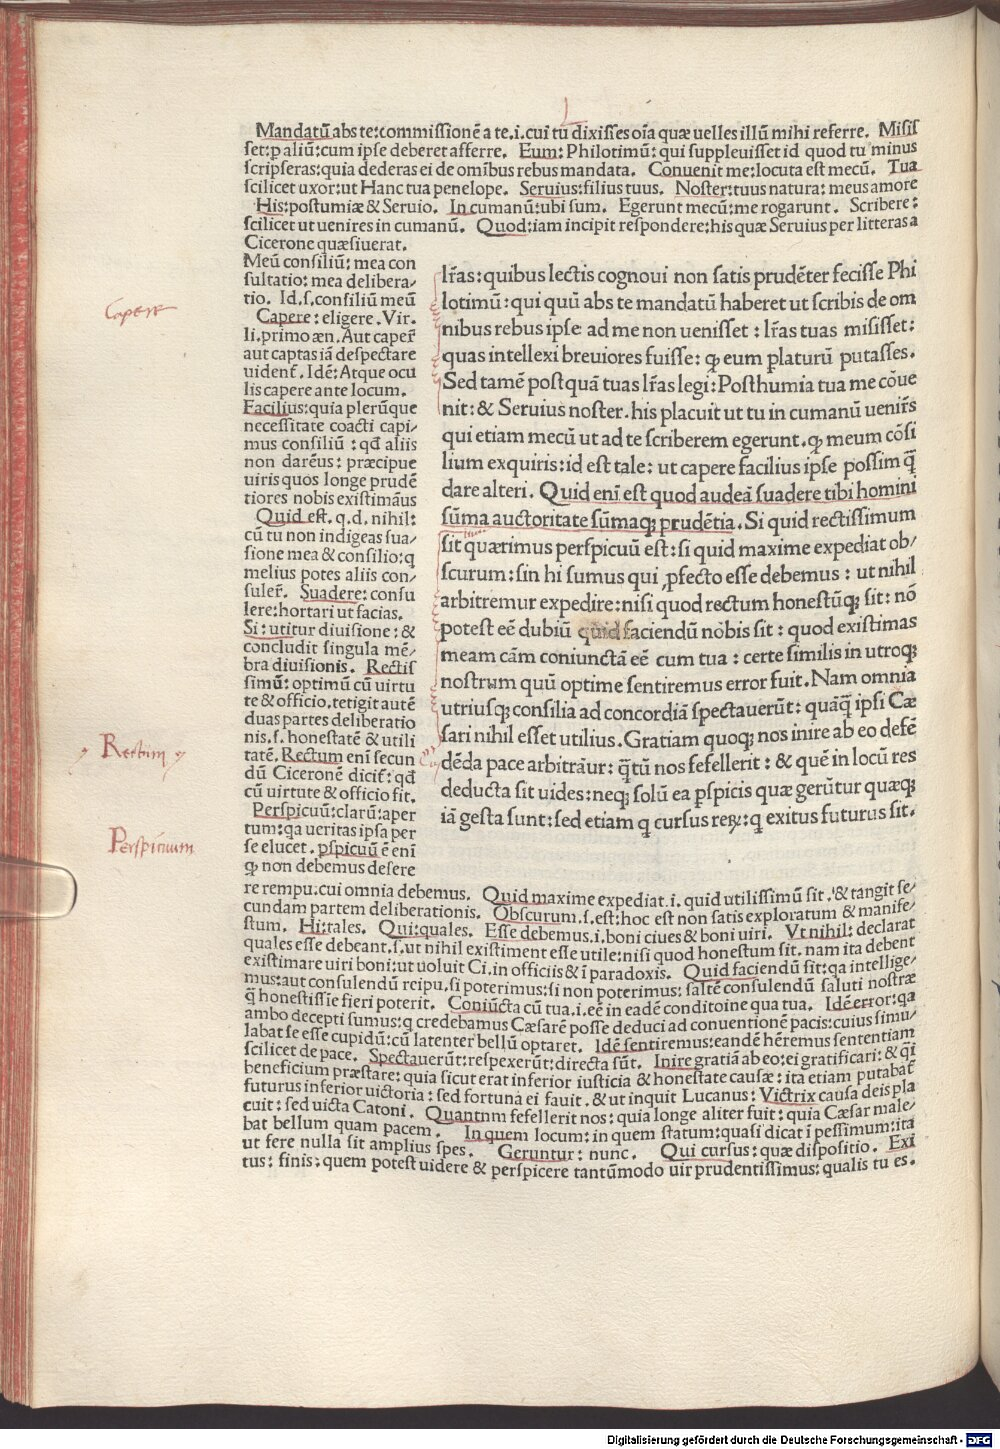 L
Mandatū abs te:commissionē a te.i.cui tu dixisses oīa quæ uelles illū mihi referre. Misis
set:ꝑ aliū:cum ipse deberet afferre. Eum: Philotimū: qui suppleuisset id quod tu minus
scripseras:quia dederas ei de omībus rebus mandata. Conuenit me:locuta est mecū. Tua
scilicet uxor:ut Hanc tua penelope. Seruius:filius tuus. Noster:tuus natura: meus amore
His:postumiæ & Seruio. In cumanū:ubi sum. Egerunt mecū:me rogarunt. Scribere:
scilicet ut uenires in cumanū. Quod:iam incipit respondere:his quæ Seruius per litteras a
Cicerone quæsiuerat.
Meū consiliū: mea con
sultatio: mea delibera/
tio. Id.s.consiliū meū
Capere: eligere. Vir.
li.primo æn. Aut caper̄
aut captas iā despectare
uident̄. Idē: Atque ocu
lis capere ante locum.
Facilius:quia plerūque
necessitate coacti capi/
mus consiliū : qd̄ aliis
non darēus: præcipue
uiris quos longe prudē
tiores nobis existimāus
Quid est. q.d. nihil:
cū tu non indigeas sua/
sione mea & consilio:q
melius potes aliis con/
suler̄. Suadere: consu
lere:hortari ut facias.
Si: utitur diuisione: &
concludit singula mē/
bra diuisionis. Rectis
simū: optimū cū uirtu
te & officio.tetigit autē
duas partes deliberatio
nis.s. honestatē & utili
tatē. Rectum enī secun
dū Ciceronē dicit̄: qd̄
cū uirtute & officio fit.
Perspicuū:clarū:aper
tum:qa ueritas ipsa per
se elucet. ꝑspicuū ē enī
ꝙ non debemus desere
Capere
Rectum
Perspicuum
lr̄as: quibus lectis cognoui non satis prudēter fecisse Phi
lotimū: qui quū abs te mandatū haberet ut scribis de om
nibus rebus ipse ad me non uenisset : lr̄as tuas misisset:
quas intellexi breuiores fuisse: ꝙ eum ꝑlaturū putasses.
Sed tamē postquā tuas lr̄as legi: Posthumia tua me cōue
nit: & Seruius noster. his placuit ut tu in cumanū uenir̄s
qui etiam mecū ut ad te scriberem egerunt. ꝙ meum cōsi
lium exquiris: id est tale: ut capere facilius ipse possim q̄̄
dare alteri. Quid enī est quod audeā suadere tibi homini
sūma auctoritate sūmaqꝫ prudētia. Si quid rectissimum
sit quærimus perspicuū est: si quid maxime expediat ob/
scurum: sin hi sumus qui ꝓfecto esse debemus : ut nihil
arbitremur expedire: nisi quod rectum honestūqꝫ sit: nō
potest eē dubiū quid faciendū nobis sit : quod existimas
meam cām coniunctā eē cum tua : certe similis in utroqꝫ
nostrum quū optime sentiremus error fuit. Nam omnia
utriusqꝫ consilia ad concordiā spectauerūt: quāq̄ ipsi Cæ
sari nihil esset utilius. Gratiam quoqꝫ nos inire ab eo defē
dēda pace arbitrāur: q̄tū nos fefellerit : & quē in locū res
deducta sit uides: neqꝫ solū ea ꝑspicis quæ gerūtur quæqꝫ
iā gesta sunt: sed etiam q cursus reꝝ: q exitus futurus sit.
re rempu.cui omnia debemus. Quid maxime expediat.i. quid utilissimū sit. & tangit se/
cundam partem deliberationis. Obscurum.s.est: hoc est non satis exploratum & manife/
stum. Hi:tales. Qui:quales. Esse debemus.i.boni ciues & boni uiri. Vt nihil: declarat
quales esse debeant.s.ut nihil existiment esse utile: nisi quod honestum sit. nam ita debent
existimare uiri boni:ut uoluit Ci.in officiis & ī paradoxis. Quid faciendū sit:qa intellige/
mus:aut consulendū reipu.si poterimus: si non poterimus: saltē consulendū saluti nostræ
q̄ honestissie fieri poterit. Coniūcta cū tua.i.eē in eadē conditoine qua tua. Idē error: qa
ambo decepti sumus: q credebamus Cæsarē posse deduci ad conuentionē pacis: cuius simu/
labat se esse cupidū: cū latenter bellū optaret. Idē sentiremus: eandē hēremus sententiam
scilicet de pace. Spectauerūt: respexerūt: directa sūt. Inire gratiā ab eo: ei gratificari: & q̄i
beneficium præstare: quia sicut erat inferior iusticia & honestate causæ: ita etiam putabat̄
futurus inferior uictoria : sed fortuna ei fauit. & ut inquit Lucanus: Victrix causa deis pla
cuit: sed uicta Catoni. Quantnm fefellerit nos: quia longe aliter fuit: quia Cæsar male/
bat bellum quam pacem. In quem locum: in quem statum: quasi dicat ī pessimum: ita
ut fere nulla sit amplius spes. Geruntur: nunc. Qui cursus: quæ dispositio. Exi
tus: finis: quem potest uidere & perspicere tantūmodo uir prudentissimus: qualis tu es.
Digitalisierung gefördert durch die Deutsche Forschungsgemeinschaft - DFG